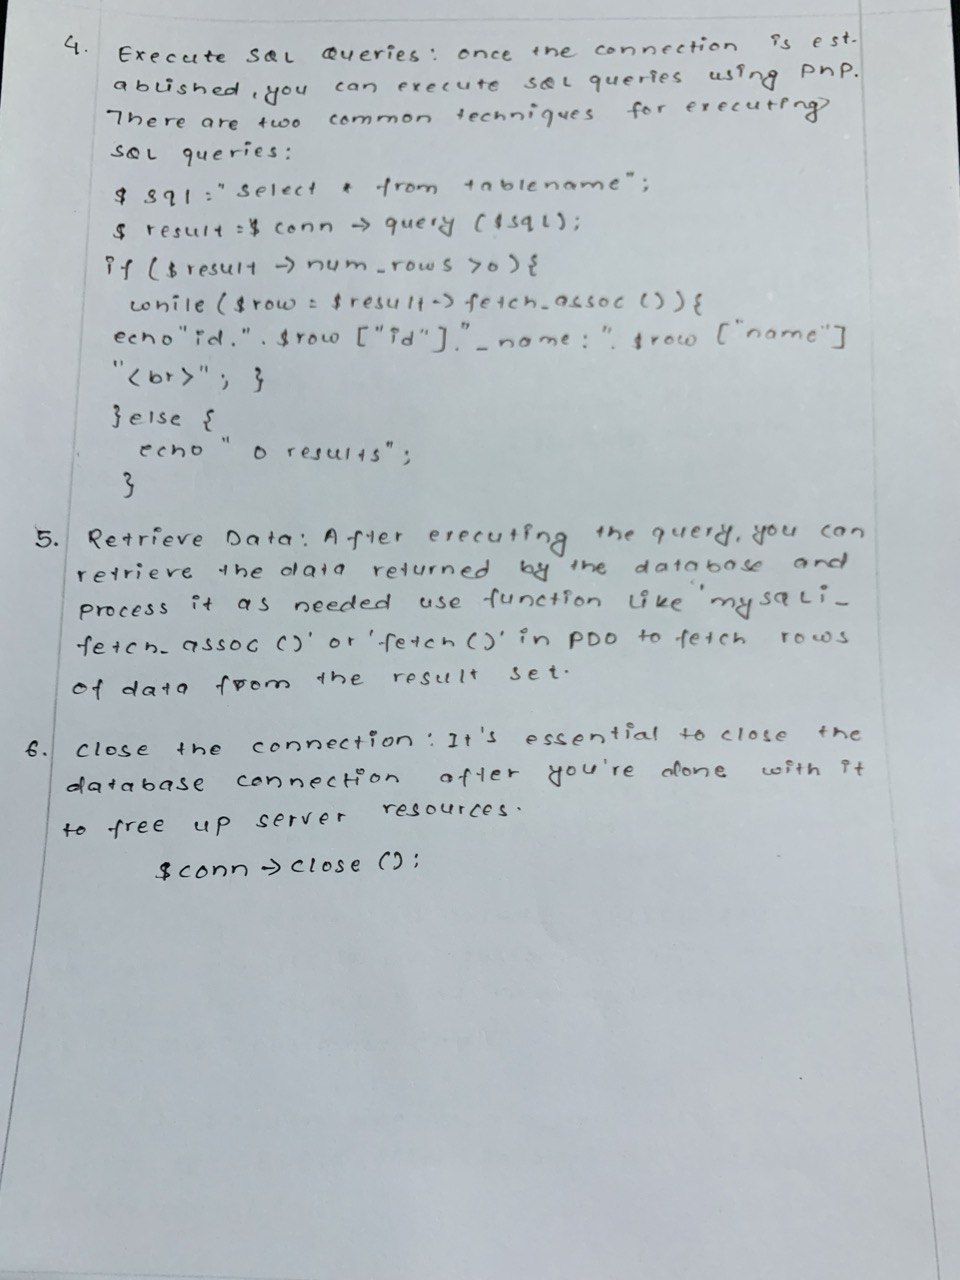 4. Execute SQL Queries: once the connection is est-
ablished, you can execute SQL queries using PHP.
There are two common techniques for executing
SQL queries:
$ sql = "select * from tablename";
$ result = $ conn → query ($sql);
if ($ result → num_rows >0) {
while ($row = $result → fetch_assoc ()) {
echo "id." . $row ["id"]."_ name: ". $row ["name"]
"<br>"; }
} else {
echo " 0 results";
}
5. Retrieve Data: After executing the query, you can
retrieve the data returned by the database and
process it as needed use function like 'mysqli_
fetch_assoc ()' or 'fetch ()' in PDO to fetch rows
of data from the result set.
6. Close the connection: It's essential to close the
database connection after you're done with it
to free up server resources.
$conn → close ();